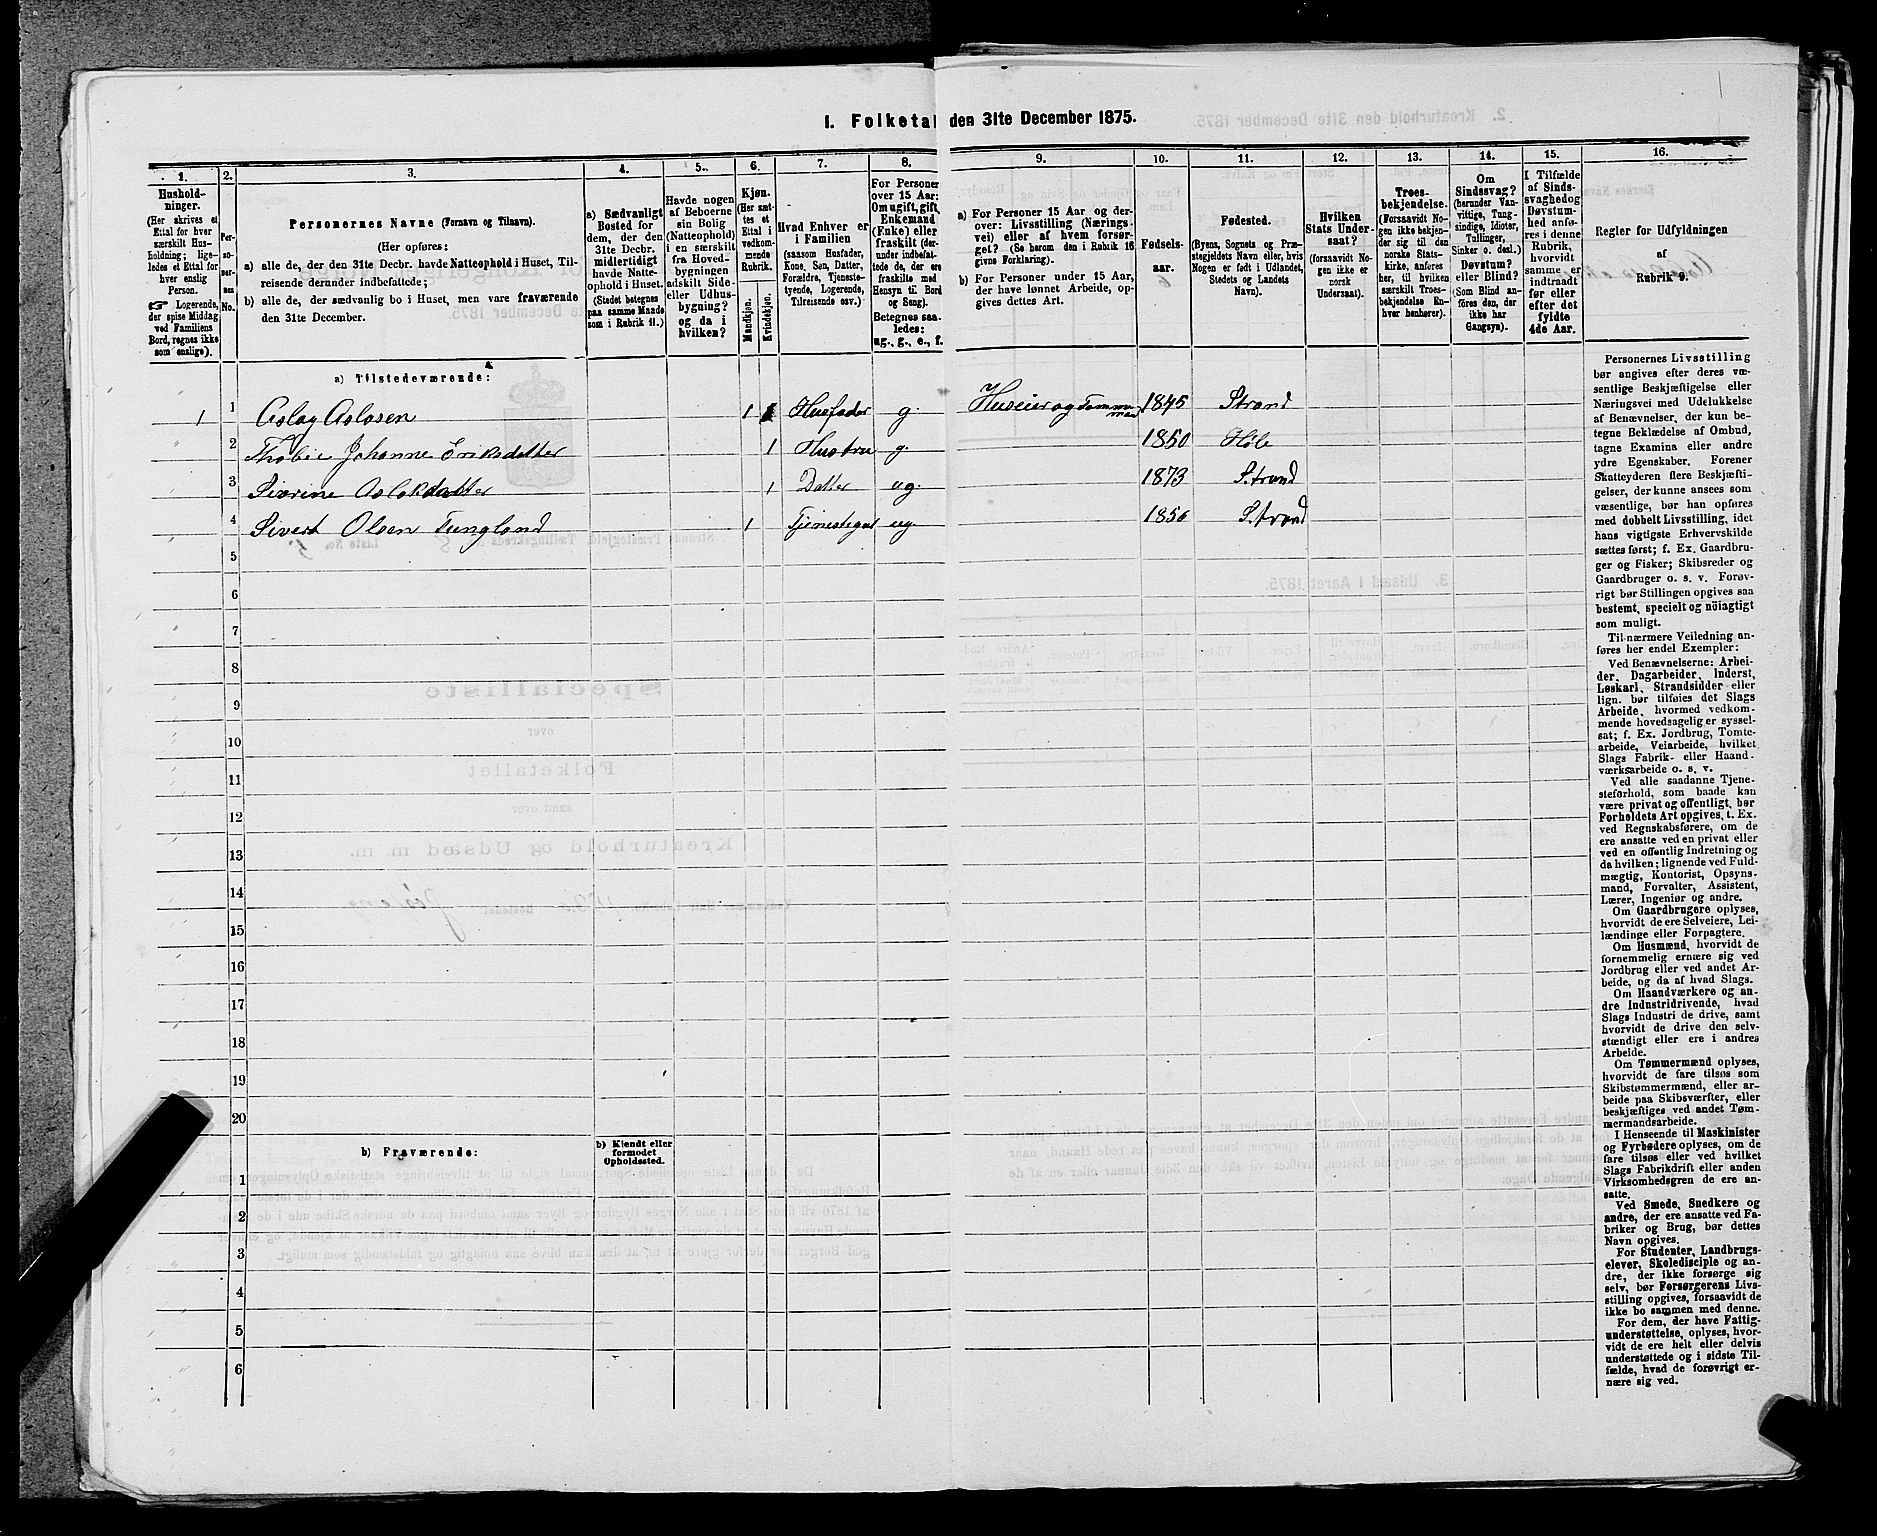 I. Folketal den 31te December 1875.
1. 2. 3. 4. 5. 6. 7. 8. 9. 10. 11. 12. 13. 14. 15. 16.
Hushold-
ninger.
(Her skrives et
Ettal for hver
særskilt Hus-
holdning; lige-
ledes et Ettal for
hver enslig
Person.
☞ Logerende,
der spise Middag
ved Familiens
Bord, regnes ikke
som enslige).
Per-
soner-
nes
No.
Personernes Navne (Fornavn og Tilnavn).
(Her opføres:
a) alle de, der den 31te Decbr. havde Natteophold i Huset, Til-
reisende derunder indbefattede;
b) alle de, der sædvanlig bo i Huset, men vare fraværende
den 31te December.
a) Sædvanligt
Bosted for
dem, der den
31te Decbr.
midlertidigt
havde Natte-
ophold i Huset.
(Stedet betegnes
paa samme Maade
som i Rubrik 11.)
Havde nogen
af Beboerne
sin Bolig
(Natteophold)
i en særskilt
fra Hoved-
bygningen
adskilt Side-
eller Udhus-
bygning?
og da i
hvilken?
Kjøn.
(Her sæt-
tes et
Ettal i
vedkom-
mende
Rubrik.
Mandkjøn.
Kvindekjøn.
Hvad Enhver er
i Familien
(saasom Husfader,
Kone, Søn, Datter,
Forældre, Tjeneste-
tyende, Logerende,
Tilreisende osv.)
For Personer
over 15 Aar:
Om ugift, gift,
Enkemand
(Enke) eller
fraskilt (der-
under indbefat-
tede de, der ere
fraskilte med
Hensyn til Bord
og Seng).
Betegnes saa-
ledes:
ug., g., e., f.
a) For Personer 15 Aar og der-
over: Livsstilling (Nærings-
vei) eller af hvem forsør-
get? (Se herom den i Rubrik 16
givne Forklaring).
b) For Personer under 15 Aar,
der have lønnet Arbeide, op-
gives dettes Art.
Fødsels-
aar.
Fødested.
(Byens, Sognets og Præ-
stegjeldets Navn eller, hvis
Nogen er født i Udlandet,
Stedets og Landets
Navn).
Hvilken
Stats Under-
saat?
(forsaavidt No-
gen ikke er
norsk
Undersaat).
Troes-
bekjendelse.
(Forsaavidt No-
gen ikke bekjen-
der sig til den
norske Stats-
kirke, anføres
her, til hvilken
særskilt Troes-
bekjendelse En-
hver henhører).
Om
Sindssvag?
(herunder Van-
vittige, Tung-
sindige, Idioter,
Tullinger,
Sinker o. desl.)
Døvstum?
eller Blind?
(Som Blind an-
føres den, der
ikke har
Gangsyn).
I Tilfælde
af Sinds-
svaghed og
Døvstum-
hed anfø-
res i denne
Rubrik,
hvorvidt
samme er
indtraadt
før eller
efter det
fyldte
4de Aar.
Regler for Udfyldningen
af
Rubrik 9.
a) Tilstedeværende:
1 1 Aslag Aslosen 1 Husfader g. Huseier og Tømmermand 1845 Strand
" 2 Thobie Johanne Eriksdatter 1 Hustru g. 1850 Høle
3 Sivrine Aslakdatter 1 Datter ug. 1873 Strand
4 Sivert Olsen Tungland 1 Tjenestegut ug. 1856 Strand
5
6
7
8
9
10
11
12
13
14
15
16
17
18
19
20
b) Fraværende:
b) Kjendt eller
formodet
Opholdssted.
1
2
3
4
5
6
Personernes Livsstilling
bør angives efter deres væ-
sentlige Beskjæftigelse eller
Næringsvei med Udelukkelse
af Benævnelser, der kun be-
tegne Beklædelse af Ombud,
tagne Examina eller andre
ydre Egenskaber. Forener
Skatteyderen flere Beskjæfti-
gelser, der kunne ansees som
væsentlige, bør han opføres
med dobbelt Livsstilling, idet
hans vigtigste Erhvervskilde
sættes først; f. Ex. Gaardbru-
ger og Fisker; Skibsreder og
Gaardbruger o. s. v. Forøv-
rigt bør Stillingen opgives saa
bestemt, specielt og nöiagtigt
som muligt.
Til nærmere Veiledning an-
føres her endel Exempler:
Ved Benævnelserne: Arbei-
der, Dagarbeider, Inderst,
Løskarl, Strandsidder eller
lign. bør tilføies det Slags
Arbeide, hvormed vedkom-
mende hovedsagelig er syssel-
sat; f. Ex. Jordbrug, Tomte-
arbeide, Veiarbeide, hvilket
Slags Fabrik- eller Haand-
værksarbeide o. s. v.
Ved alle saadanne Tjene-
steforhold, som baade kan
være privat og offentligt, bør
Forholdets Art opgives, t. Ex.
ved Regnskabsførere, om de
ere ansatte ved en privat eller
ved en offentlig Indretning og
da hvilken; lignende ved Fuld-
mægtig, Kontorist, Opsyns-
mand, Forvalter, Assistent,
Lærer, Ingeniør og andre.
Om Gaardbrugere oplyses,
hvorvidt de ere Selveiere, Lei-
lændinge eller Forpagtere.
Om Husmænd, hvorvidt de
fornemmelig ernære sig ved
Jordbrug eller ved andet Ar-
beide, og da af hvad Slags.
Om Haandværkere og an-
dre Industridrivende, hvad
Slags Industri de drive, samt
hvorvidt de drive den selv-
stændigt eller ere i andres
Arbeide.
Om Tømmermænd oplyses,
hvorvidt de fare tilsøs som
Skibstømmermænd, eller ar-
beide paa Skibsværfter, eller
beskjæftiges ved andet Tøm-
mermandsarbeide.
I Henseende til Maskinister
og Fyrbødere oplyses, om de
fare tilsøs eller ved hvilket
Slags Fabrikdrift eller anden
Virksomhedsgren de ere an-
satte.
Ved Smede, Snedkere og
andre, der ere ansatte ved Fa-
briker og Brug, bør dettes
Navn opgives.
For Studenter, Landbrugs-
elever, Skoledisciple og an-
dre, der ikke forsørge sig
selv, bør Forsørgerens Livs-
stilling opgives, forsaavidt de
ikke bo sammen med denne.
For dem, der have Fattig-
understøttelse, oplyses, hvor-
vidt de ere helt eller delvis
understøttede og i sidste Til-
fælde, hvad de forøvrigt er-
nære sig ved.